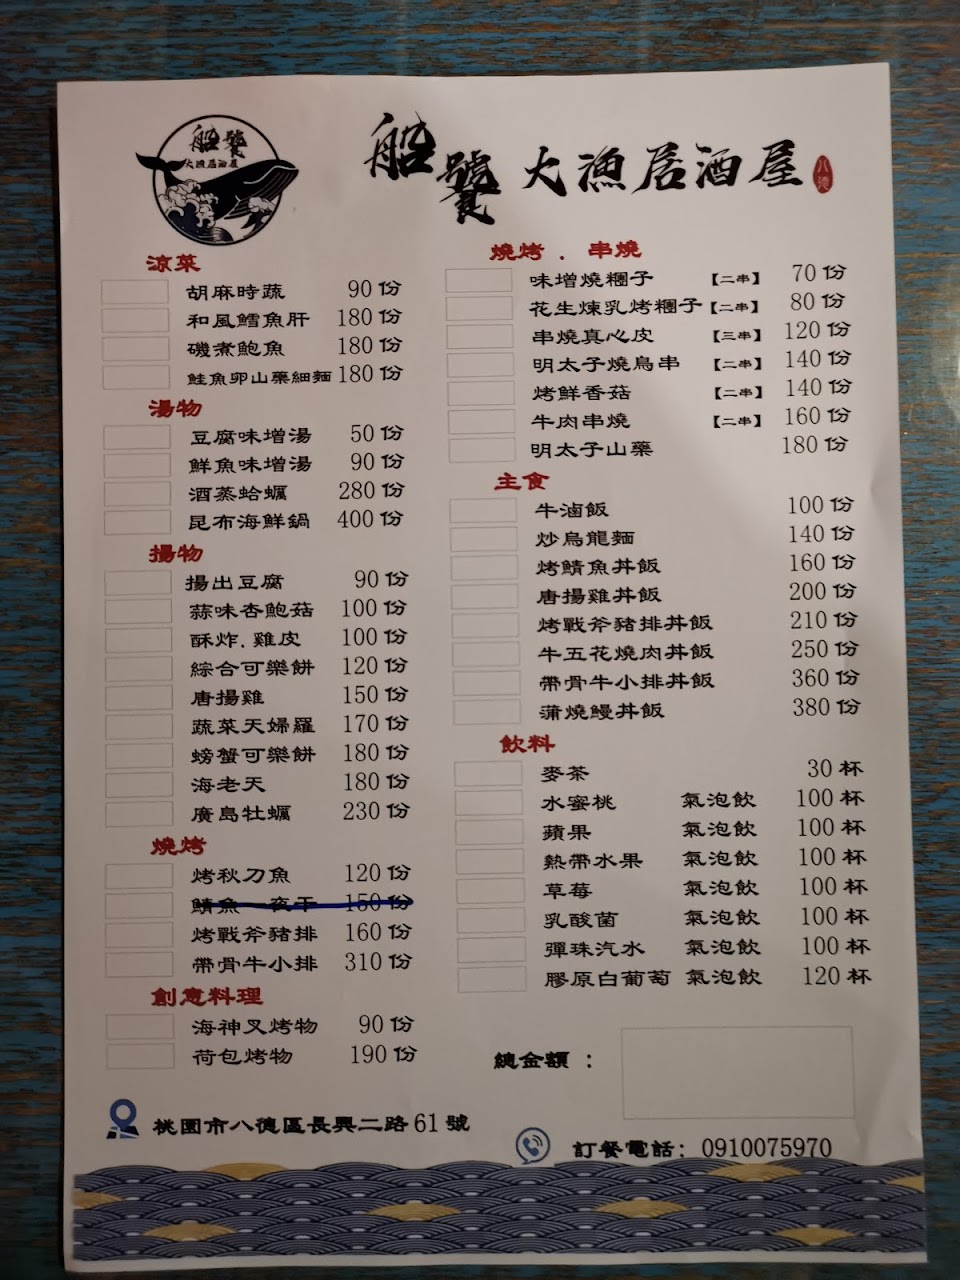 船饕
大漁居酒屋
船饕 大漁居酒屋 八德
涼菜
胡麻時蔬 90 份
和風鱈魚肝 180 份
磯煮鮑魚 180 份
鮭魚卵山藥細麵 180 份
湯物
豆腐味增湯 50 份
鮮魚味增湯 90 份
酒蒸蛤蠣 280 份
昆布海鮮鍋 400 份
揚物
揚出豆腐 90 份
蒜味杏鮑菇 100 份
酥炸.雞皮 100 份
綜合可樂餅 120 份
唐揚雞 150 份
蔬菜天婦羅 170 份
螃蟹可樂餅 180 份
海老天 180 份
廣島牡蠣 230 份
燒烤
烤秋刀魚 120 份
鯖魚一夜干 150 份
烤戰斧豬排 160 份
帶骨牛小排 310 份
創意料理
海神叉烤物 90 份
荷包烤物 190 份
燒烤 . 串燒
味增燒糰子 【二串】 70 份
花生煉乳烤糰子【二串】 80 份
串燒真心皮 【三串】 120 份
明太子燒鳥串 【二串】 140 份
烤鮮香菇 【二串】 140 份
牛肉串燒 【二串】 160 份
明太子山藥 180 份
主食
牛滷飯 100 份
炒烏龍麵 140 份
烤鯖魚丼飯 160 份
唐揚雞丼飯 200 份
烤戰斧豬排丼飯 210 份
牛五花燒肉丼飯 250 份
帶骨牛小排丼飯 360 份
蒲燒鰻丼飯 380 份
飲料
麥茶 30 杯
水蜜桃 氣泡飲 100 杯
蘋果 氣泡飲 100 杯
熱帶水果 氣泡飲 100 杯
草莓 氣泡飲 100 杯
乳酸菌 氣泡飲 100 杯
彈珠汽水 氣泡飲 100 杯
膠原白葡萄 氣泡飲 120 杯
總金額 :
桃園市八德區長興二路 61 號
訂餐電話: 0910075970